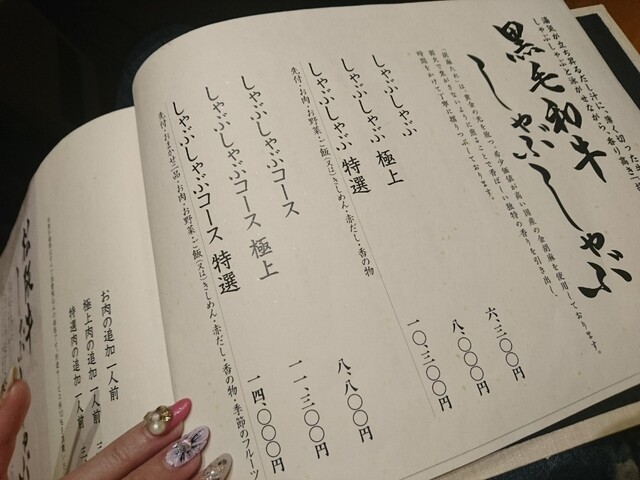 黒毛和牛
しゃぶしゃぶ
湯気が立ち昇るだし汁に、薄く切った
しゃぶしゃぶと泳がせながら、香り高き
「胡麻だれ」は、黄金の光を放つ、希少価値が高い国産の金胡麻を使用しております。
時間をかけて丁寧に擂りつぶしております。
しゃぶしゃぶ 六、三〇〇円
しゃぶしゃぶ 極上 八、〇〇〇円
しゃぶしゃぶ 特選 一〇、三〇〇円
先付・お肉・お野菜・ご飯（又は）きしめん・赤だし・香の物
しゃぶしゃぶコース 八、八〇〇円
しゃぶしゃぶコース 極上 一一、三〇〇円
しゃぶしゃぶコース 特選 一四、〇〇〇円
先付・おまかせ一品・お肉・お野菜・ご飯（又は）きしめん・赤だし・香の物・季節のフルーツ
お肉の追加 一人前
極上肉の追加 一人前
特選肉の追加 一人前